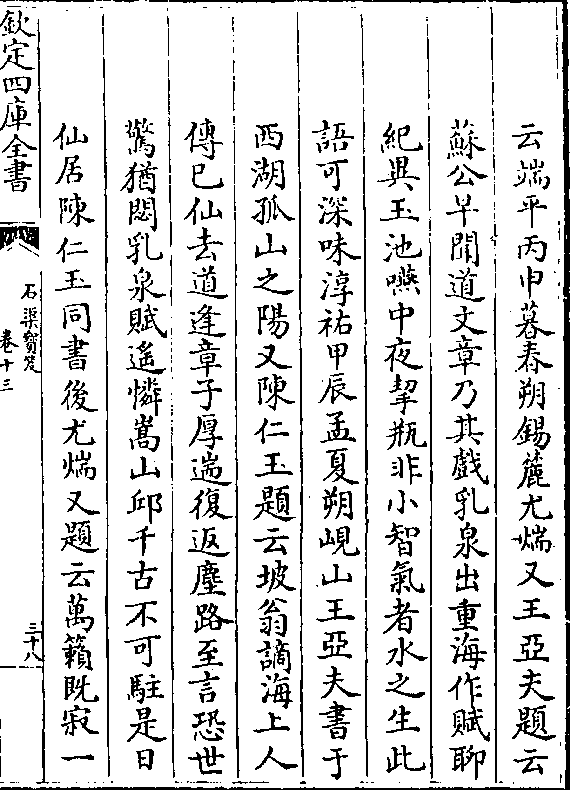 云端平丙申暮春朔錫麓尤煓又王亞夫題云
蘇公早聞道文章乃其戲乳泉出重海作賦聊
紀異玉池嚥中夜挈瓶非小智氣者水之生此
語可深味淳祐甲辰孟夏朔峴山王亞夫書于
西湖孤山之陽又陳仁玉題云坡翁謫海上人
傳已仙去道逢章子厚遄復返塵路至言恐世
驚猶閟乳泉賦遙憐嵩山邱千古不可駐是日
仙居陳仁玉同書後尤煓又題云萬籟既寂一
欽定四庫全書
石渠寶笈
卷十三
三十八